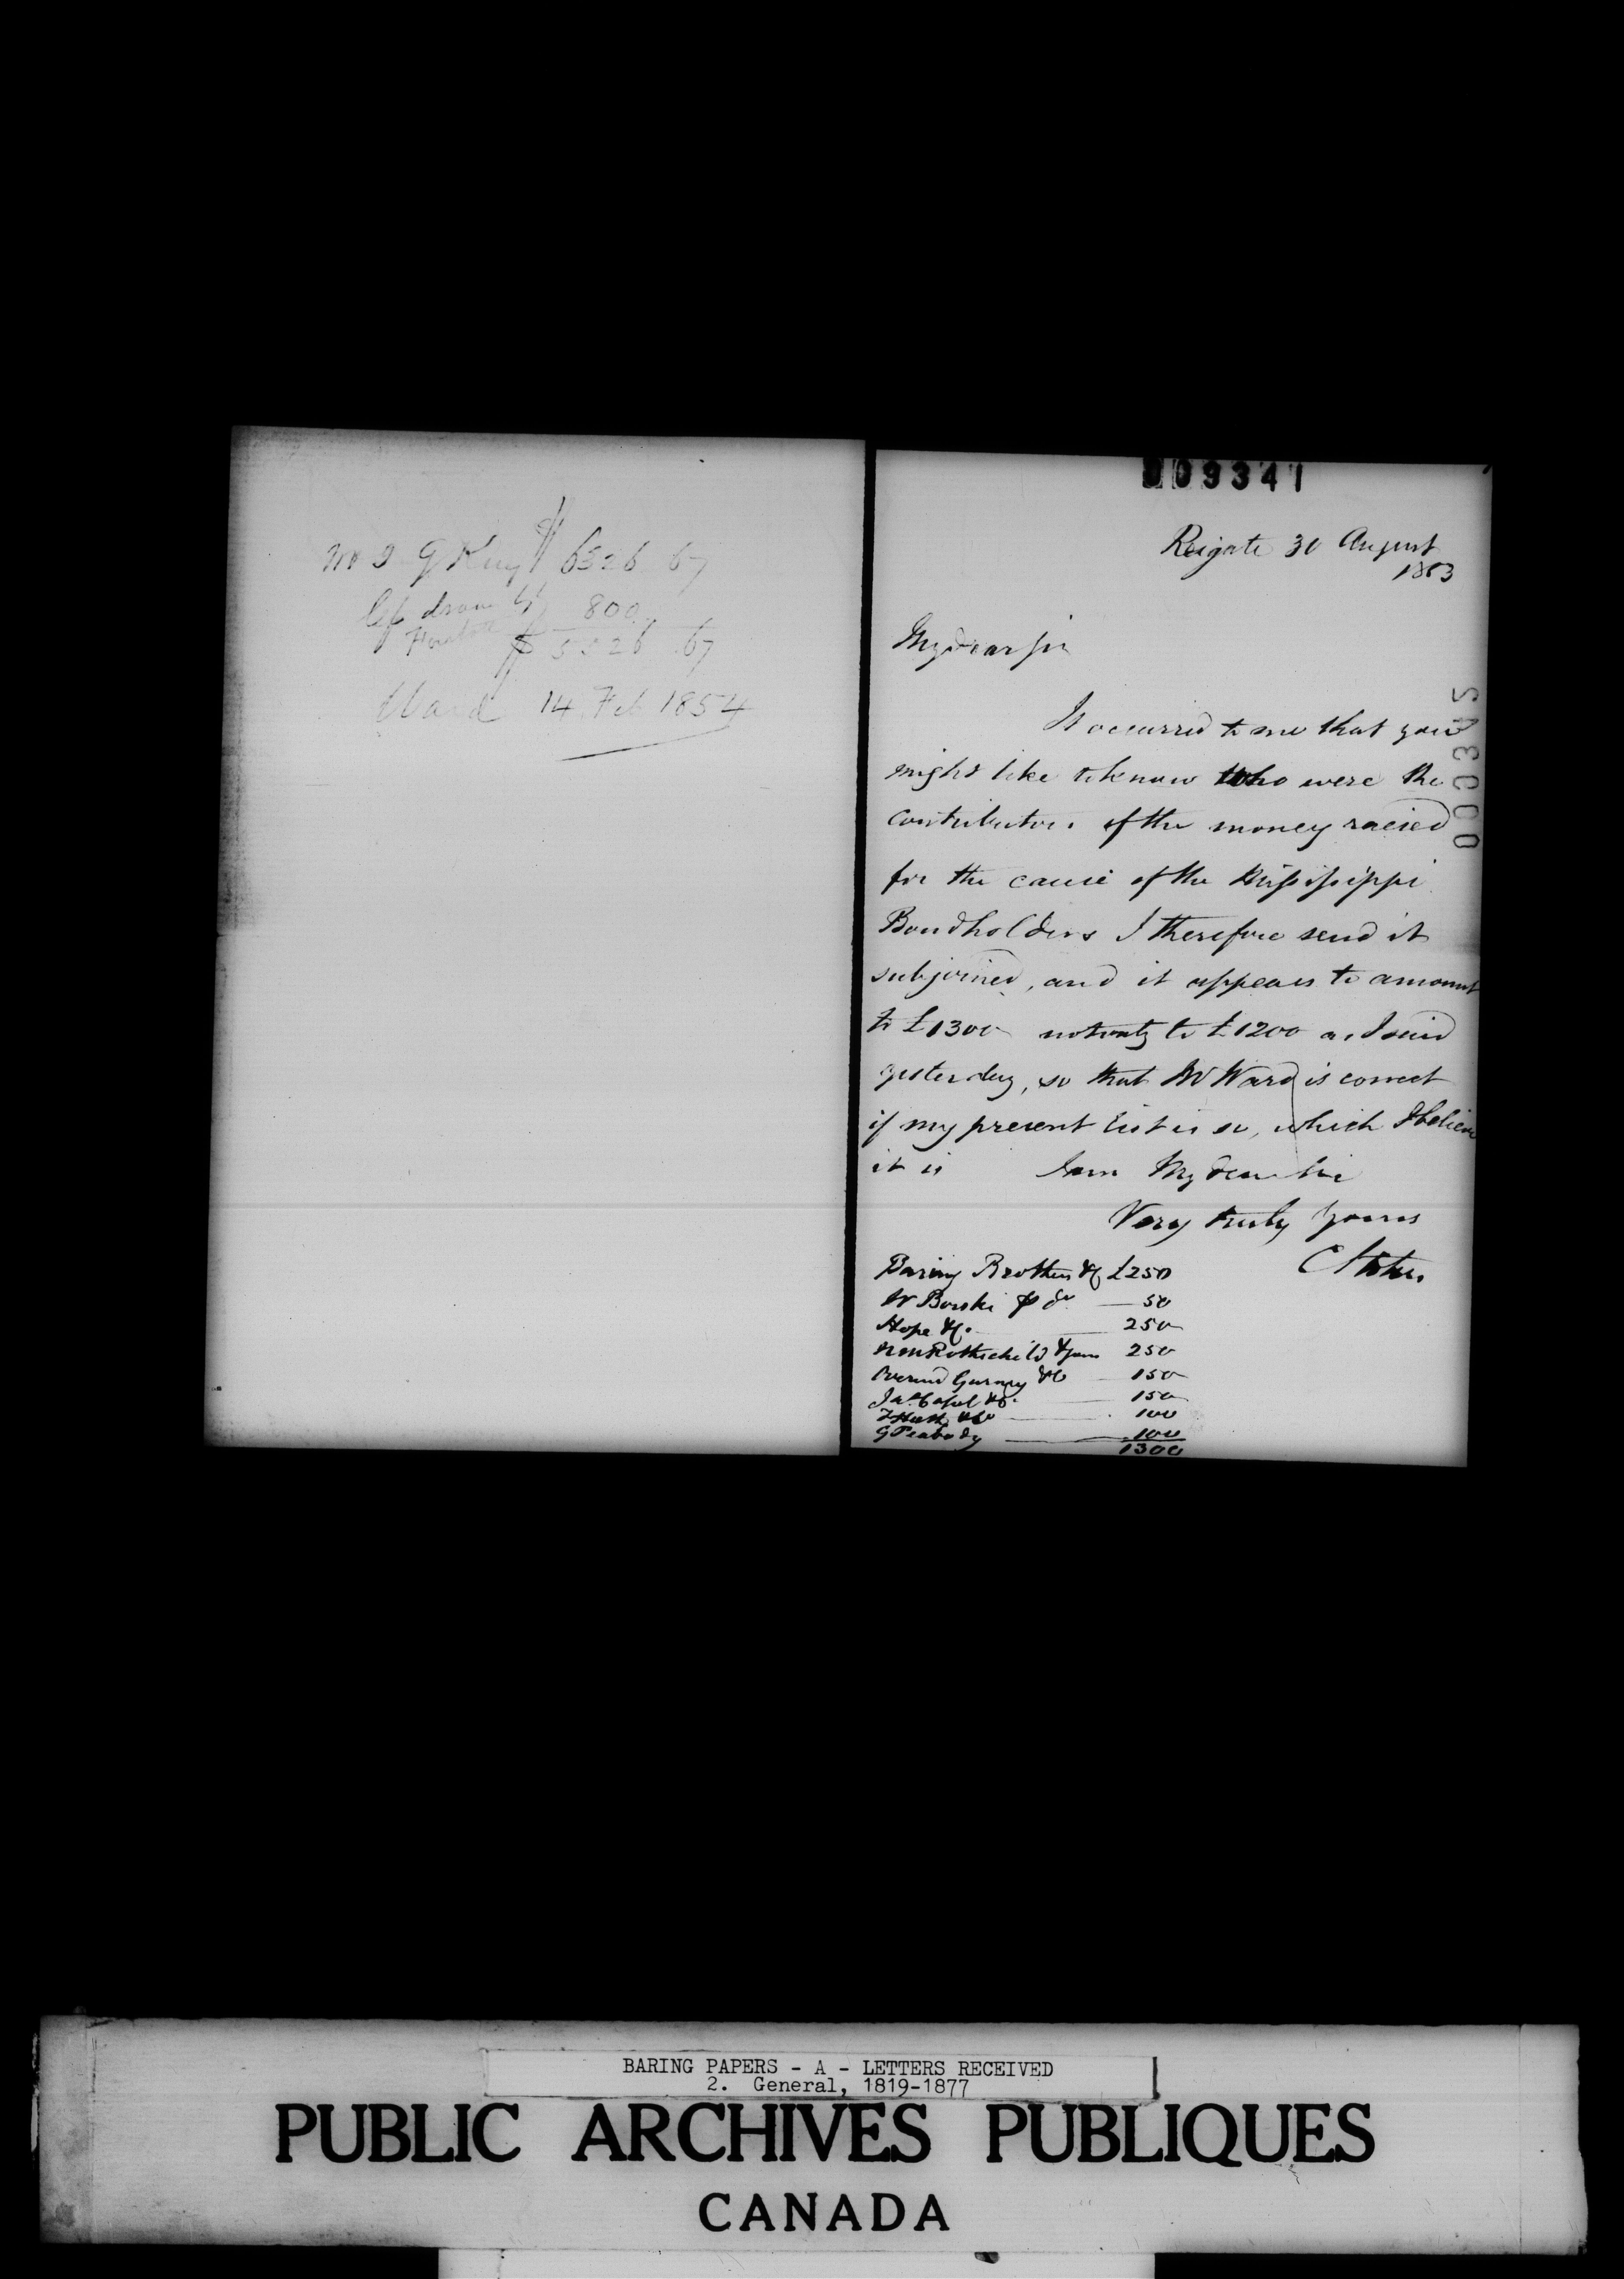 $
Mr J G King $ 6326 67
drawn 800
$ 5526 .67
Ward 14 Feb 1854
009341
Reigate 30 August
1853
My dear Sir
000345
It occurred to me that you
might like to know who were the
contributors of the money raised
for the cause of the Mississippi
Bondholders I therefore send it
subjoined, and it appears to amount
to £1300 not only to £1200 as I said
yesterday, so that Mr Ward is correct
if my present list is so, which I believe
it is I am My dear Sir
Very truly Yours
C Stokes
Baring Brothers & Co £250
W Borski 50
Hope & Co. 250
N M Rothschild & Sons 250
Overend Gurney & Co 150
Jas Capel & Co. 150
F Huth & Co 100
G Peabody 100
1300
BARING PAPERS - A - LETTERS RECEIVED
2. General, 1819-1877
PUBLIC ARCHIVES PUBLIQUES
CANADA